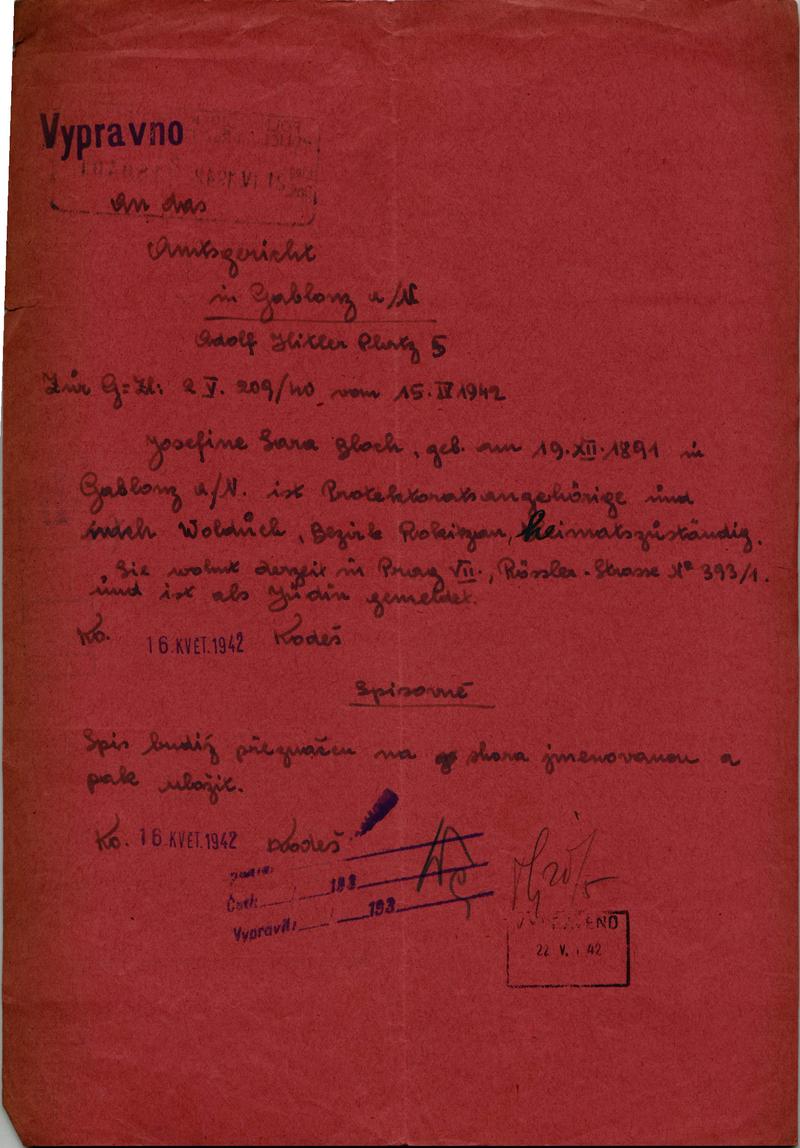 Vypravno
An das
Amtsgericht
in Gablonz a/N
Adolf Hitler Platz 5
Zur G=Zl: 2 V. 209/40 vom 15. IV 1942
Josefine Sara Bloch, geb. am 19. XII. 1891 in
Gablonz a/N. ist Protektoratsangehörige und
nach Wolduch, Bezirk Rokitzan, heimatszuständig.
Sie wohnt derzeit in Prag VII., Rössler-Strasse No 393/1.
und ist als Jüdin gemeldet.
Ko. 16. KVĚT. 1942 Kodeš
Spisovně
Spis budiž přeznačen na shora jmenovanou a
pak uložit.
Ko. 16. KVĚT. 1942 Kodeš
193
Četl: 193
Vypravil:
22 V. 42